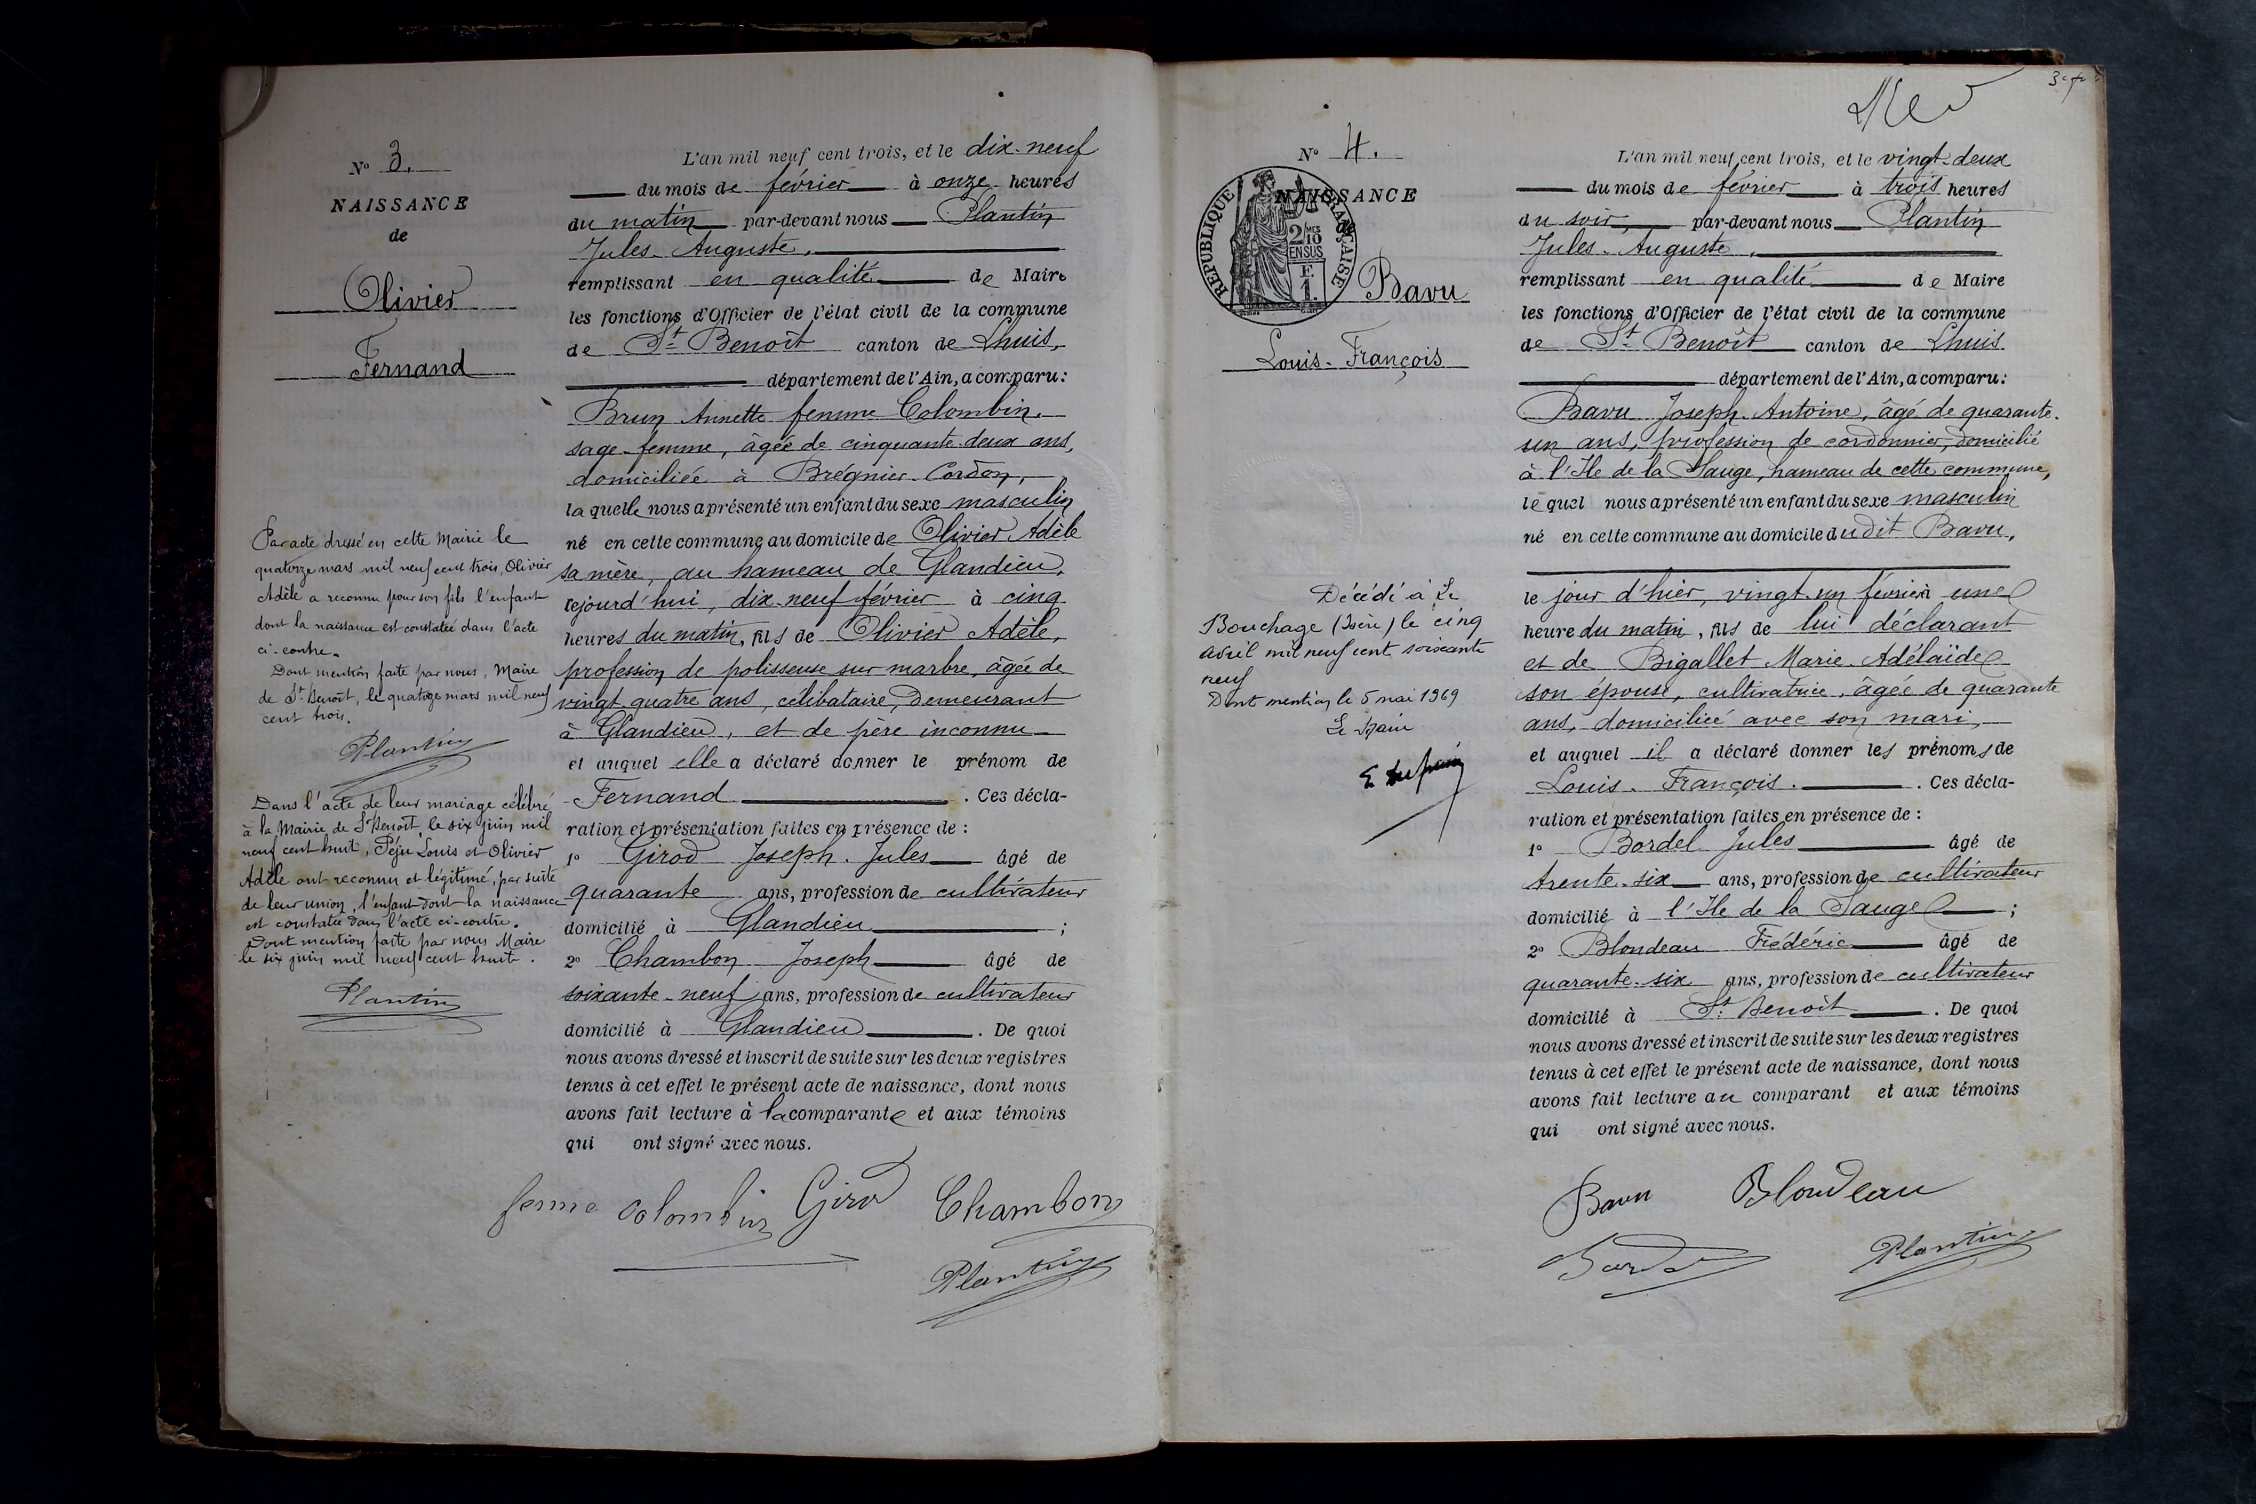 N° 3.
NAISSANCE
de
Olivier
Fernand
Par acte dressé en cette Mairie le
quatorze mars mil neuf cent trois, Olivier
Adèle a reconnu pour son fils l'enfant
dont la naissance est constatée dans l'acte
ci-contre.
Dont mention faite par nous, Maire
de St Benoît, le quatorze mars mil neuf
cent trois.
Plantin
Dans l'acte de leur mariage célébré
à la Mairie de St Benoît, le six juin mil
neuf cent huit, Péju Louis et Olivier
Adèle ont reconnu et légitimé, par suite
de leur union, l'enfant dont la naissance
est constatée dans l'acte ci-contre.
Dont mention faite par nous Maire
le six juin mil neuf cent huit.
Plantin
L'an mil neuf cent trois, et le dix-neuf
du mois de février à onze heures
du matin par-devant nous Plantin
Jules-Auguste,
remplissant en qualité de Maire
les fonctions d'Officier de l'état civil de la commune
de St Benoît canton de Lhuis,
département de l'Ain, a comparu:
Brun Annette femme Colombin,
sage-femme, âgée de cinquante-deux ans,
domiciliée à Brégnier-Cordon,
la quelle nous a présenté un enfant du sexe masculin
né en cette commune au domicile de Olivier Adèle
sa mère, au hameau de Glandieu,
cejourd'hui, dix-neuf février à cinq
heures du matin, fils de Olivier Adèle,
profession de polisseuse sur marbre, âgée de
vingt-quatre ans, célibataire, demeurant
à Glandieu, et de père inconnu
et auquel elle a déclaré donner le prénom de
Fernand . Ces décla-
ration et présentation faites en présence de :
1° Girod Joseph-Jules âgé de
quarante ans, profession de cultivateur
domicilié à Glandieu ;
2° Chambon Joseph âgé de
soixante-neuf ans, profession de cultivateur
domicilié à Glandieu . De quoi
nous avons dressé et inscrit de suite sur les deux registres
tenus à cet effet le présent acte de naissance, dont nous
avons fait lecture à la comparante et aux témoins
qui ont signé avec nous.
femme Colombin Girod Chambon
Plantin
N° 4.
NAISSANCE
RÉPUBLIQUE FRANÇAISE
2/10 MES
EN SUS
F.
1.
Bavu
Louis-François
Décédé à Le
Bouchage (Isère) le cinq
avril mil neuf cent soixante
neuf
Dont mention le 5 mai 1969
Le Maire
L'an mil neuf cent trois, et le vingt-deux
du mois de février à trois heures
du soir, par-devant nous Plantin
Jules-Auguste,
remplissant en qualité de Maire
les fonctions d'Officier de l'état civil de la commune
de St Benoît canton de Lhuis
département de l'Ain, a comparu:
Bavu Joseph-Antoine, âgé de quarante-
un ans, profession de cordonnier, domicilié
à l'Ile de la Sauge, hameau de cette commune,
le quel nous a présenté un enfant du sexe masculin
né en cette commune au domicile dudit Bavu,
le jour d'hier, vingt-un février à une
heure du matin, fils de lui déclarant
et de Bigallet Marie-Adélaïde
son épouse, cultivatrice, âgée de quarante
ans, domiciliée avec son mari,
et auquel il a déclaré donner les prénoms de
Louis-François. . Ces décla-
ration et présentation faites en présence de :
1° Bordel Jules âgé de
trente-six ans, profession de cultivateur
domicilié à l'Ile de la Sauge ;
2° Blondeau Frédéric âgé de
quarante-six ans, profession de cultivateur
domicilié à St Benoît . De quoi
nous avons dressé et inscrit de suite sur les deux registres
tenus à cet effet le présent acte de naissance, dont nous
avons fait lecture au comparant et aux témoins
qui ont signé avec nous.
Bavu Blondeau
Plantin